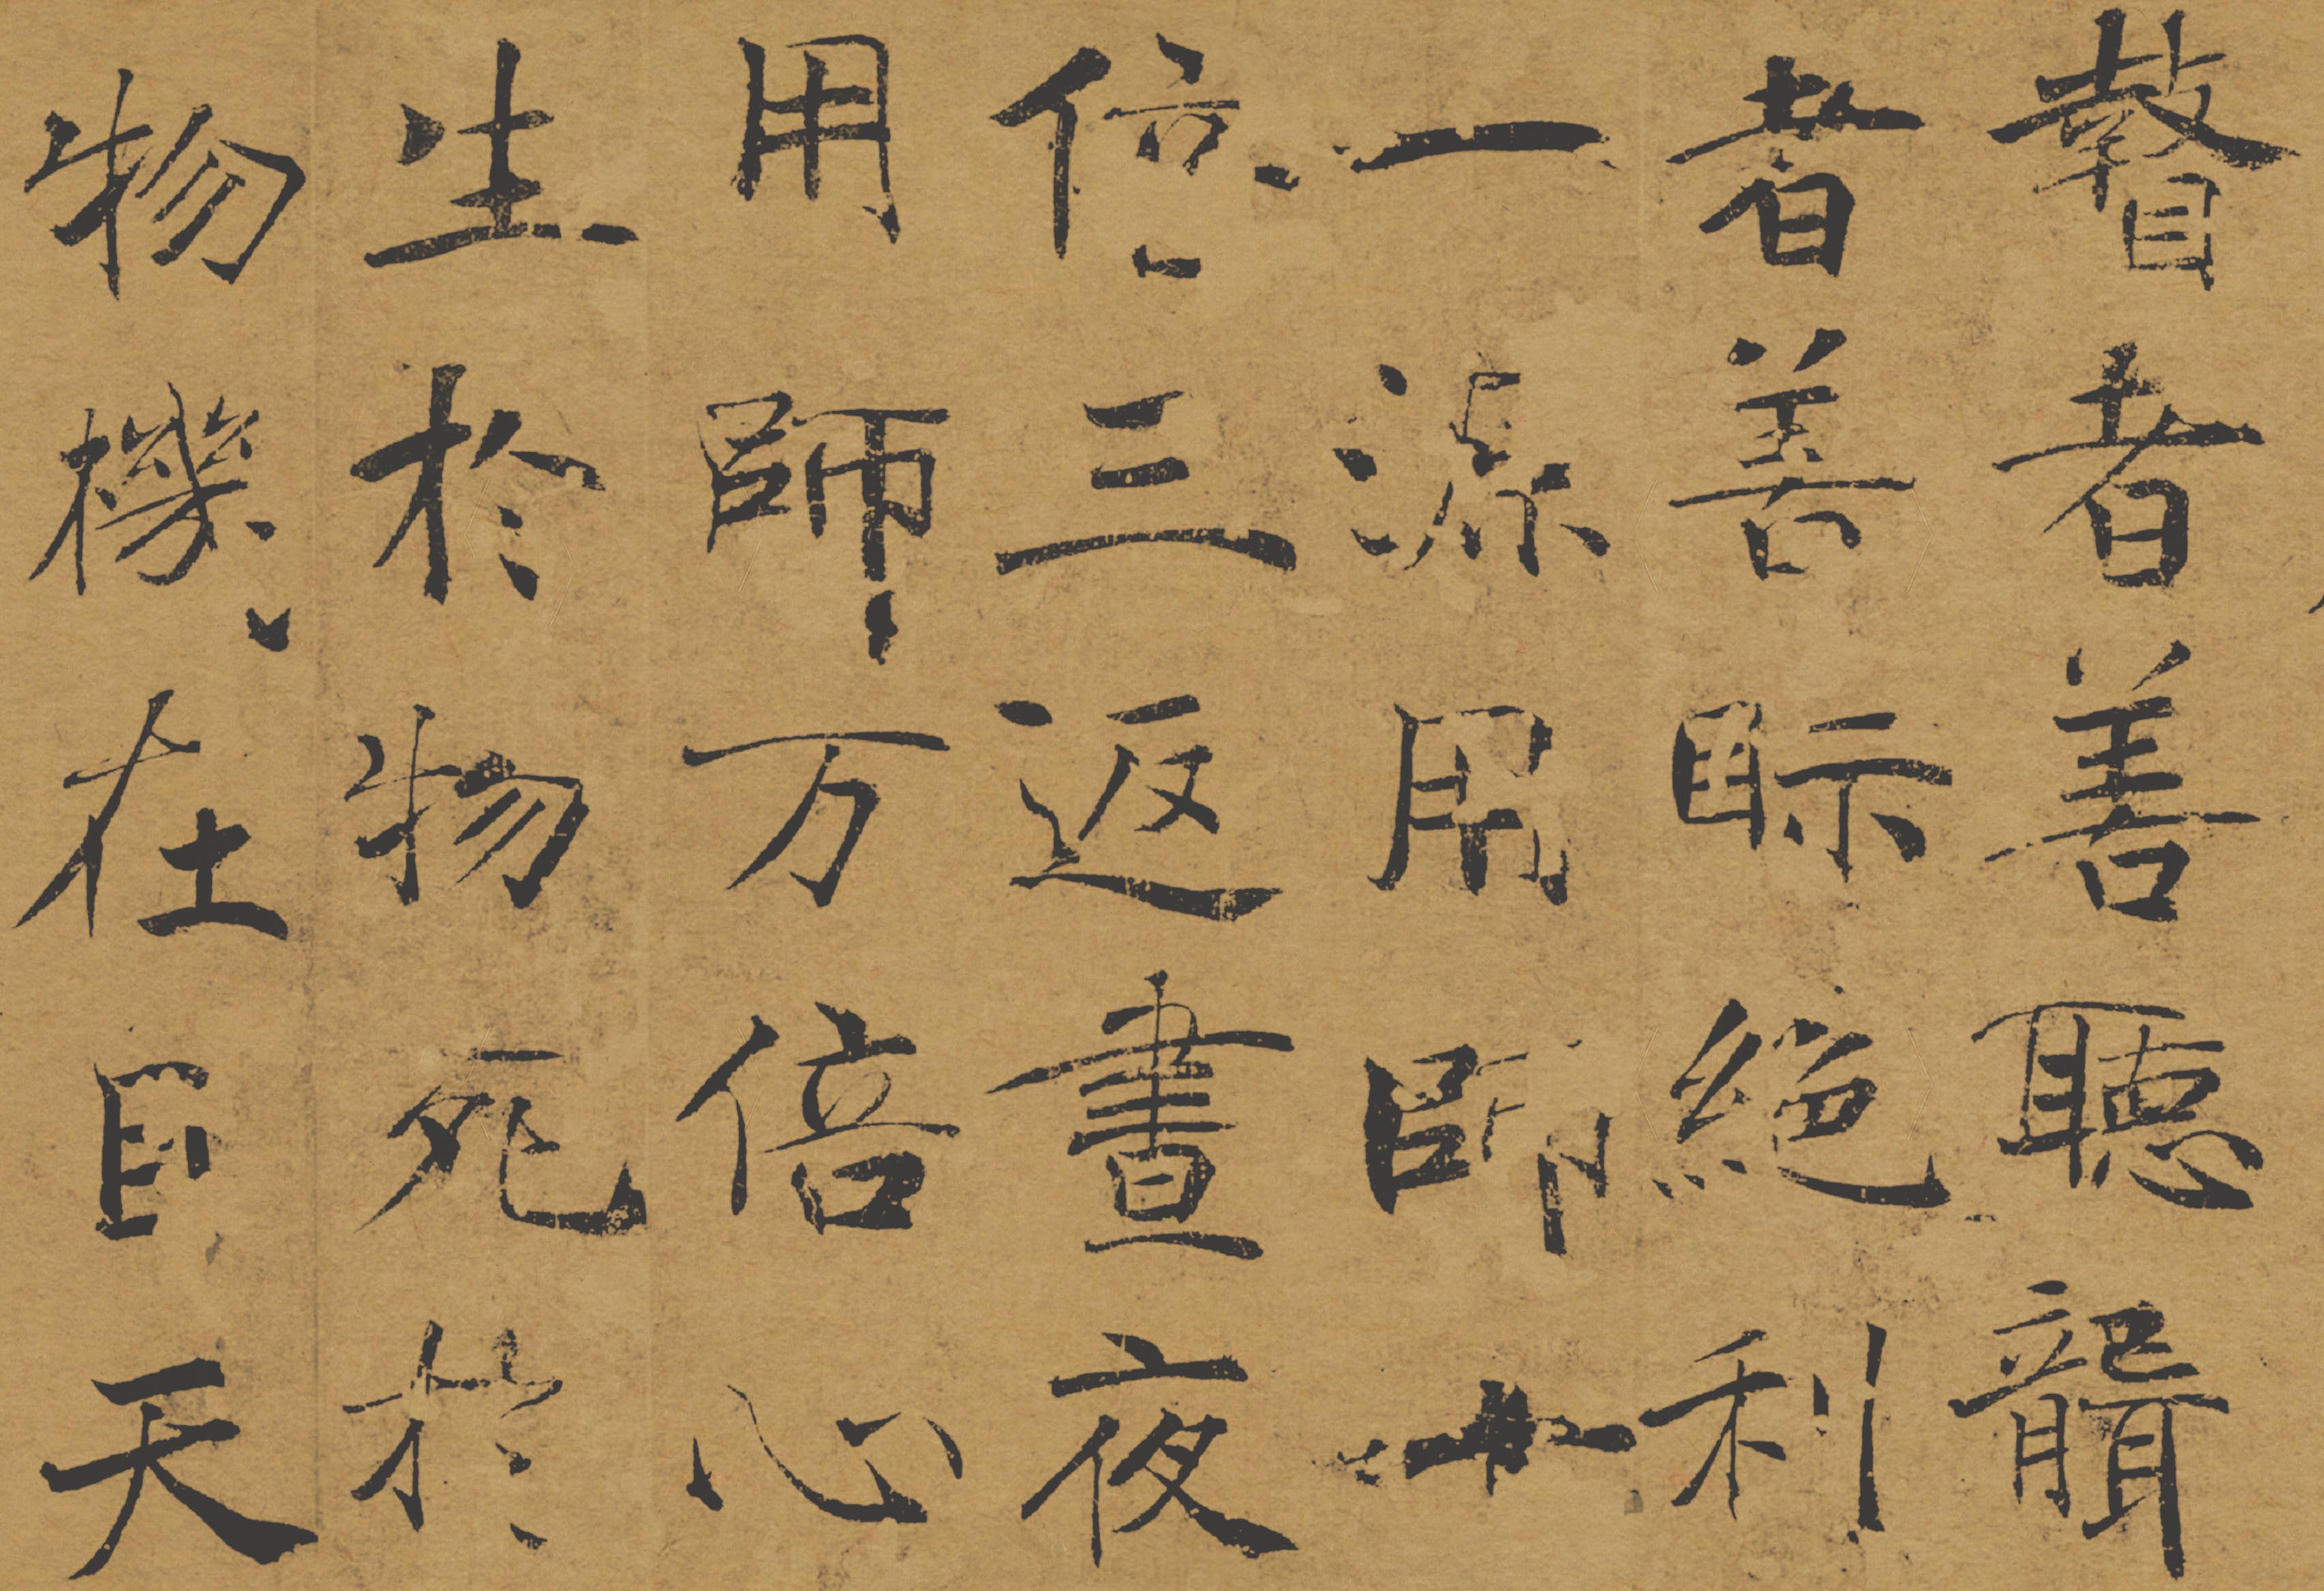 瞽者善聽聾
者善眎絕利
一源用師十
倍三返晝夜
用師万倍心
生於物死於
物機在目天